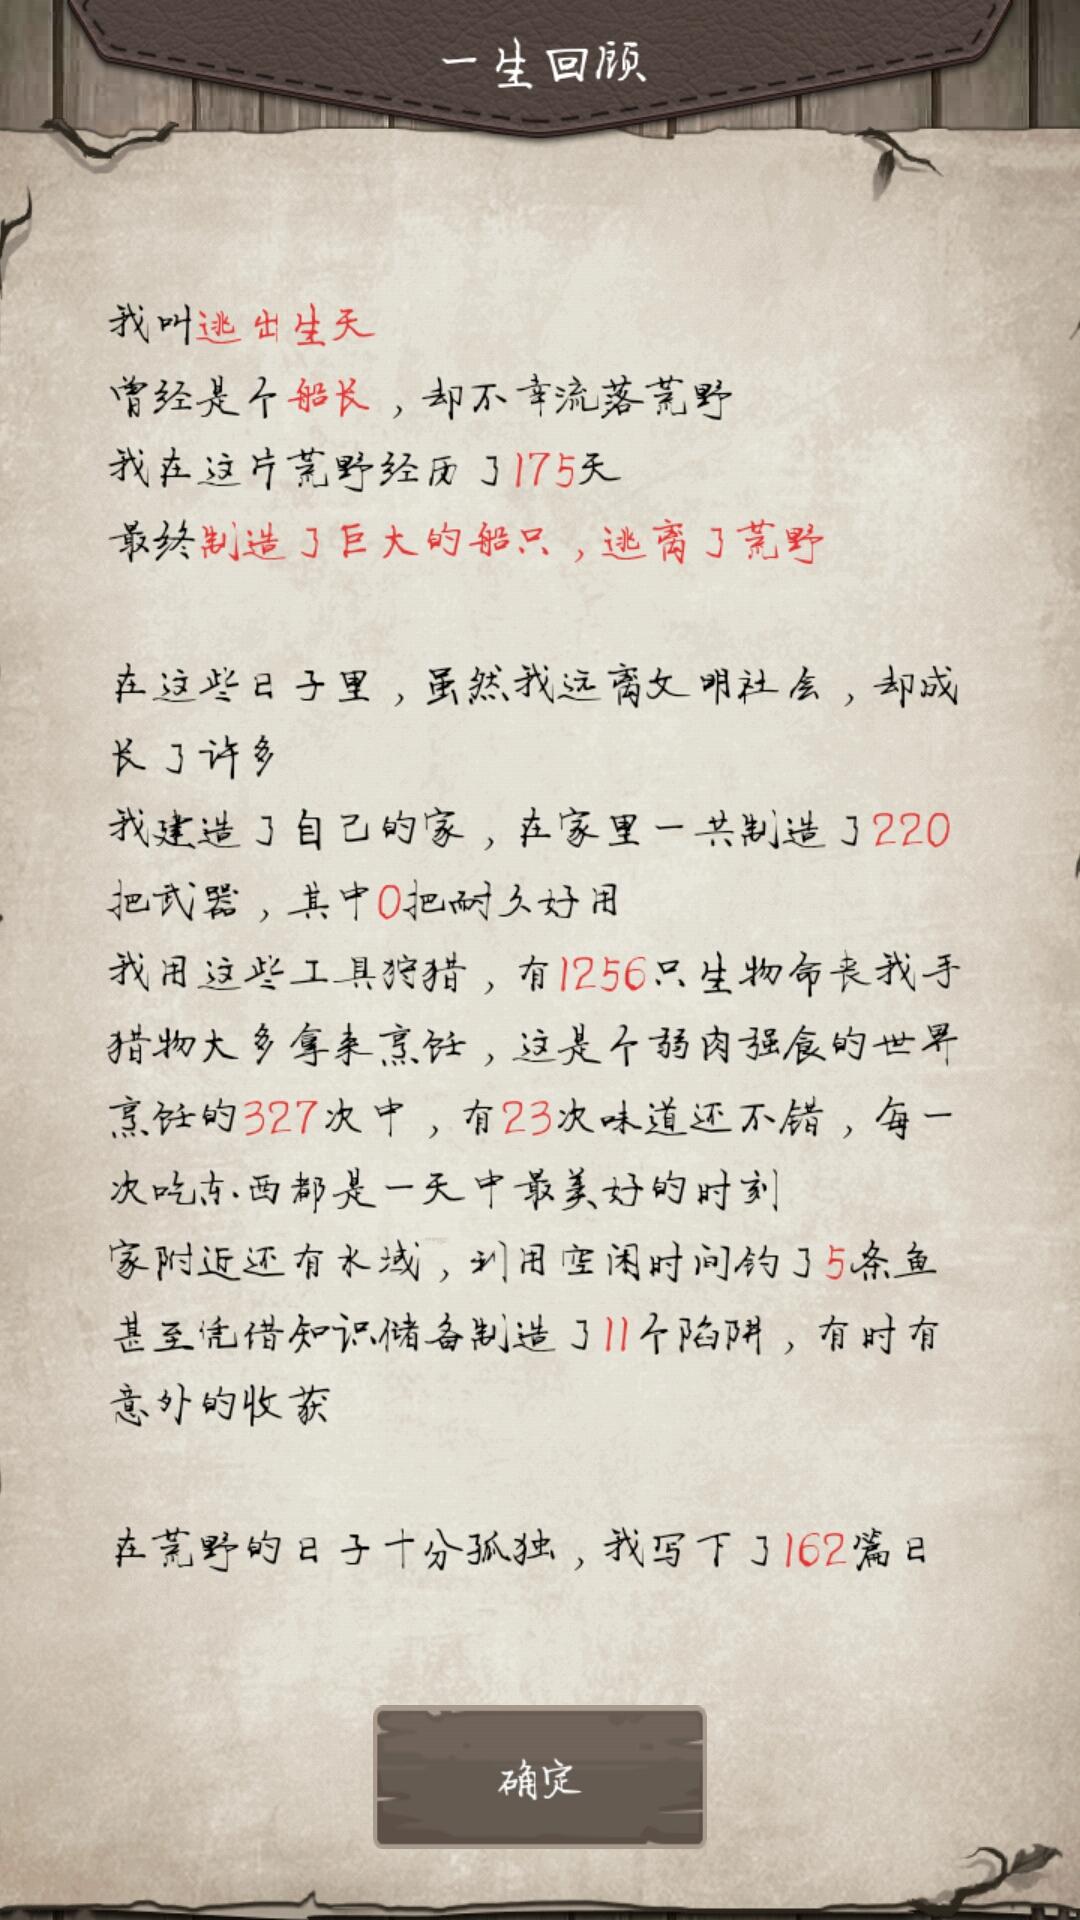 一生回顾
我叫逃出生天
曾经是个船长，却不幸流落荒野
我在这片荒野经历了175天
最终制造了巨大的船只，逃离了荒野
在这些日子里，虽然我远离文明社会，却成
长了许多
我建造了自己的家，在家里一共制造了220
把武器，其中0把耐久好用
我用这些工具狩猎，有1256只生物命丧我手
猎物大多拿来烹饪，这是个弱肉强食的世界
烹饪的327次中，有23次味道还不错，每一
次吃东西都是一天中最美好的时刻
家附近还有水域，利用空闲时间钓了5条鱼
甚至凭借知识储备制造了11个陷阱，有时有
意外的收获
在荒野的日子十分孤独，我写下了162篇日
确定